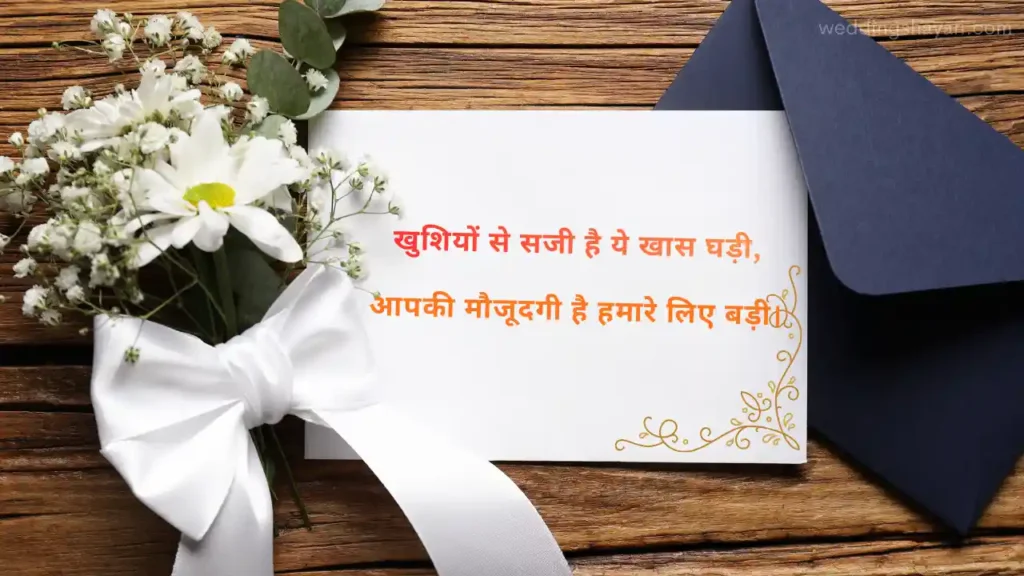 weddingshayari.com
खुशियों से सजी है ये खास घड़ी,
आपकी मौजूदगी है हमारे लिए बड़ी।